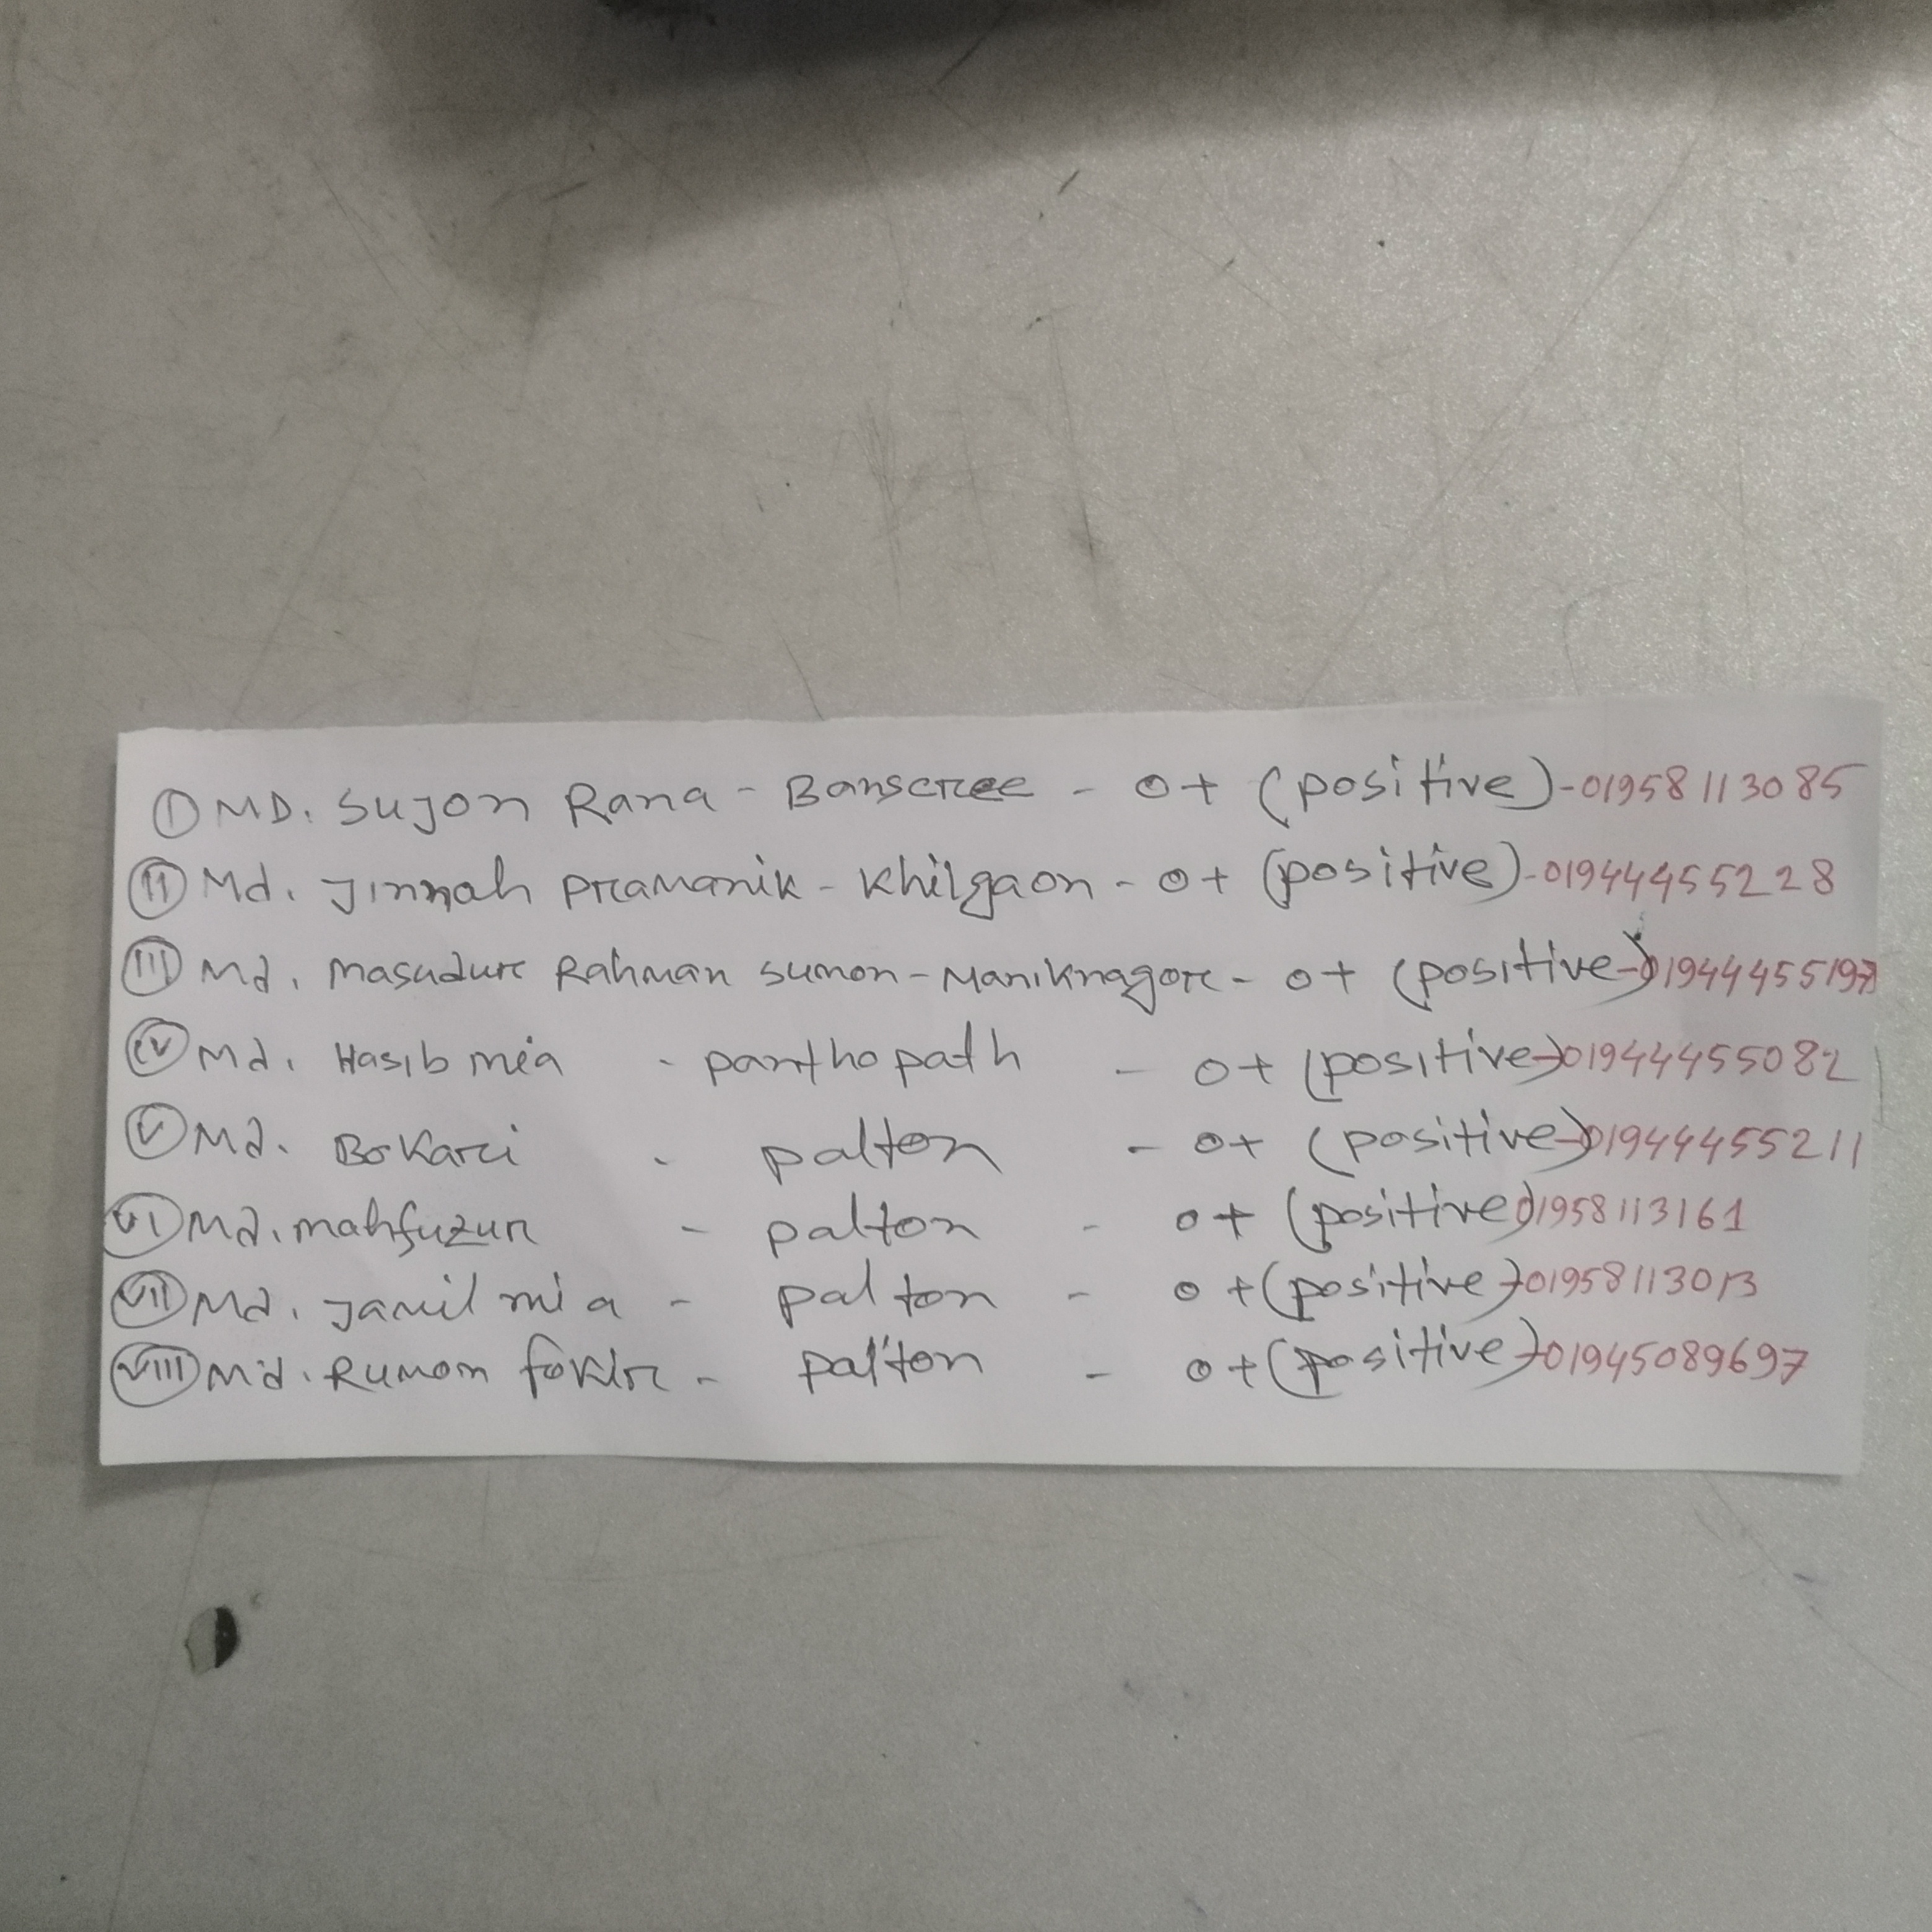 (I) MD. Sujon Rana - Bansree - O+ (positive)-01958113085
(II) Md. Jinnah Pramanik - Khilgaon - O+ (positive)-01944455228
(III) Md. Masudur Rahman Sumon - Maniknagor - O+ (positive)-01944455197
(IV) Md. Hasib mia - panthopath - O+ (positive)-01944455082
(V) Md. Bokari - palton - O+ (positive)-01944455211
(VI) Md. mahfuzur - palton - O+ (positive)01958113161
(VII) Md. Jamil mia - palton - O+ (positive)-01958113013
(VIII) Md. Rumon fokir - palton - O+ (positive)-01945089697